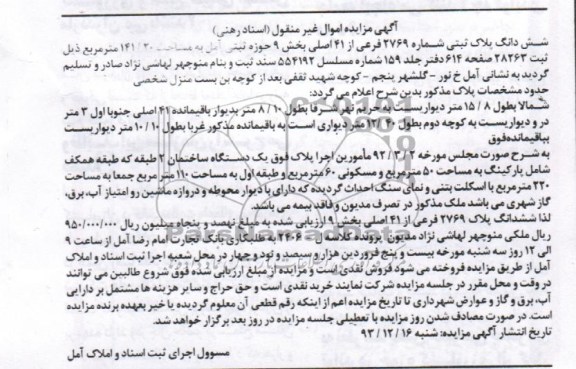 آگهی مزایده اموال غیر منقول (اسناد رهنی)
شش دانگ پلاک ثبتی شماره ۲۷۶۹ فرعی از ۴۱ اصلی بخش ۹ حوزه ثبتی آمل به مساحت ۱۴۱/۲۰ مترمربع ذیل
ثبت ۲۸۲۶۳ صفحه ۶۱۴ دفتر جلد ۱۵۹ شماره مسلسل ۵۵۴۱۹۲ سند ثبت و بنام منوچهر لهاشی نژاد صادر و تسلیم
گردید به نشانی آمل خ نور - گلشهر پنجم - کوچه شهید ثقفی بعد از کوچه بن بست منزل شخصی
حدود مشخصات پلاک مذکور بدین شرح اعلام می گردد:
شمالا بطول ۱۵/۸ متر دیواریست به حریم نهر شرقا بطول ۸/۱۰ متر بدیوار باقیمانده ۴۱ اصلی جنوبا اول ۳ متر
در و دیواریست به کوچه دوم بطول ۱۲/۴۰ متر دیواری است به باقیمانده مذکور غربا بطول ۱۰/۱۰ متر دیواریست
بباقیمانده فوق
به شرح صورت مجلس مورخه ۹۲/۳/۲ مأمورین اجرا پلاک فوق یک دستگاه ساختمان ۲ طبقه که طبقه همکف
شامل پارکینگ به مساحت ۵۰ مترمربع و مسکونی ۶۰ مترمربع و طبقه اول به مساحت ۱۱۰ متر مربع جمعا به مساحت
۲۲۰ مترمربع با اسکلت بتنی و نمای سنگ احداث گردیده که دارای دیوار محوطه و دروازه ماشین رو امتیاز آب، برق،
گاز شهری می باشد ملک مذکور در تصرف مدیون و فاقد بیمه می باشد.
لذا ششدانگ پلاک ۲۷۶۹ فرعی از ۴۱ اصلی بخش ۹ ارزیابی شده به مبلغ نهصد و پنجاه میلیون ریال ۹۵۰/۰۰۰/۰۰۰
ریال ملکی منوچهر لهاشی نژاد مدیون پرونده کلاسه ۲۴۰۶ به طلبکاری بانک تجارت امام رضا آمل از ساعت ۹
الی ۱۲ روز سه شنبه مورخه بیست و پنج فروردین هزار و سیصد و نود و چهار در محل شعبه اجرا ثبت اسناد و املاک
آمل از طریق مزایده فروخته می شود فروش نقدی است و مزایده از مبلغ ارزیابی شده فوق شروع طالبین می توانند
در وقت و محل مقرر در جلسه مزایده شرکت نمایند خرید نقدی است و حق حراج و سایر هزینه ها مشتمل بر دارایی
آب، برق و گاز و عوارض شهرداری تا تاریخ مزایده اعم از اینکه رقم قطعی آن معلوم گردیده یا خیر بعهده برنده مزایده
است. در صورت مصادف شدن روز مزایده با تعطیلی جلسه مزایده در روز بعد برگزار خواهد شد.
تاریخ انتشار آگهی مزایده: شنبه ۹۳/۱۲/۱۶
مسوول اجرای ثبت اسناد و املاک آمل